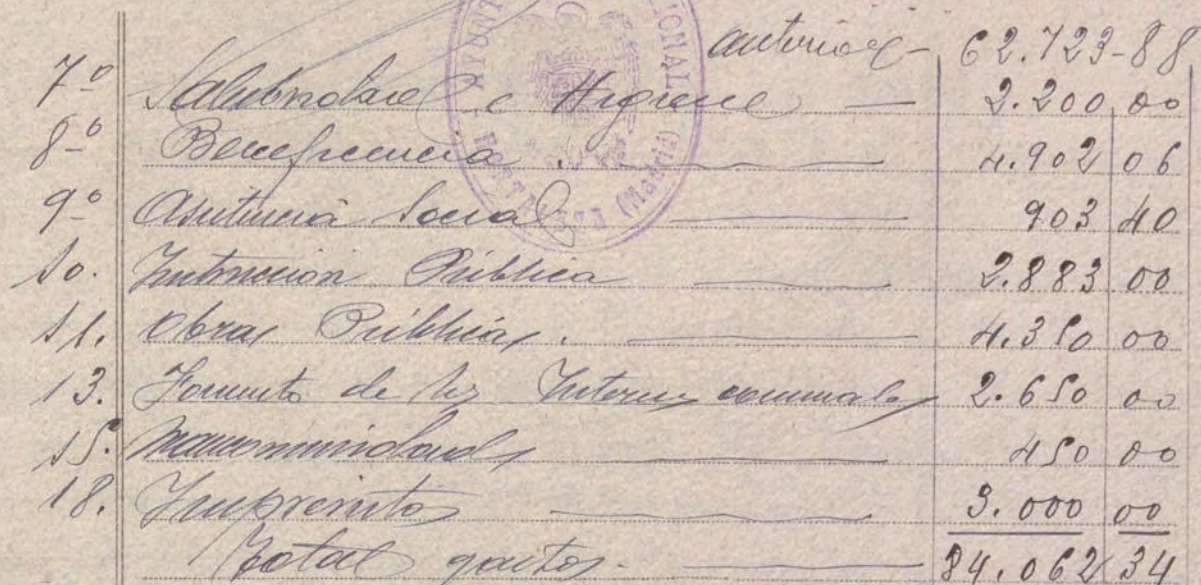 anterior - 62.723-88
7º Salubridad e Higiene — 2.200 00
8º Beneficencia . — 4.902 06
9º Asistencia Social — 903 40
10. Instrucción Pública — 2.883 00
11. Obras Públicas . — 4.350 00
13. Fomento de los Intereses comunales 2.650 00
15. Mancomunidades — 450 00
18. Imprevistos — 3.000 00
Total gastos . — 84.062 34
AYUNT CIONAL (Madrid)